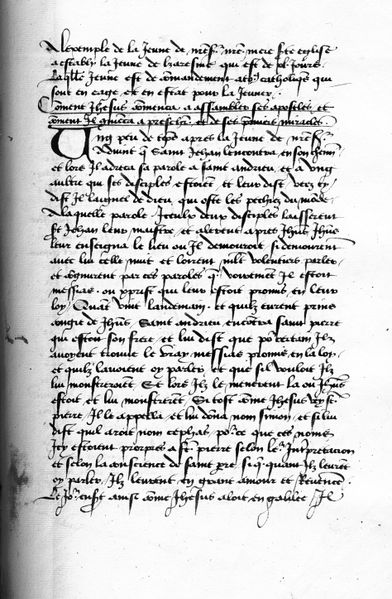 A lexemple de la Jeune de nr̃e s̃ nr̃e mere s̃te eglise
a estably la Jeune de karesme qui est de pl' Jours
Laqlle Jeune est de comandement a to' catholiqs qui
sont en eage et en estat pour la Jeuner
Coment Jhesus comenca a assambler ses apostles et
coment Il comenca a preschr̃ et de ses pmiers miracles
Ung peu de tẽps apres la Jeune de nr̃e s̃
Advint q̃ saint Jehan lencontra en son chemin
et lors Il adreca sa parole a saint andrieu et a ung
aultre qui ses disciples estoiẽt et leur dist veez cy
dist Il laignel de dieu qui oste les pechiez du mõde
A laquelle parole Iceulx deux disciples laisserent
s̃t Jehan leur maistre et alerent apres Jhũs Jhũs
leur enseigna le lieu ou Il demouroit si demourerẽt
avec lui celle nuit et loirent mlt voluntiers parler
et cõgnurent par ces paroles q̃ vraiement Il estoit
messias ou xpr̃ist qui leur estoit promis en leur
loy Quãt vint landemain et quilz eurent prins
congie de Jhũs Saint andrieu encõtra saint pierre
qui estoit son frere et lui dist que po' certain Ilz
avoyent trouve le vray messias promis en la loy
et quilz lavoient oy parler et que sil vouloit Ilz
lui monstreroiẽt Et lors Ilz le menerent la ou Jhũs
estoit et lui monstrerẽt Si tost cõme Jhesus vey s̃t
pierre Il le appella et lui dõna nom simon et si lui
dist quil avoit nom cephas po'ce que ces noms
Icy estoient propres a s̃t pierre selon le' Interpretacion
et selon la conscience de saint pre si q̃ quant Ilz leurẽt
oy parler Ilz leurent en grant amour et Reverẽce
Le Jo' ensuyt ainsi cõme Jhesus aloit en galilee Il